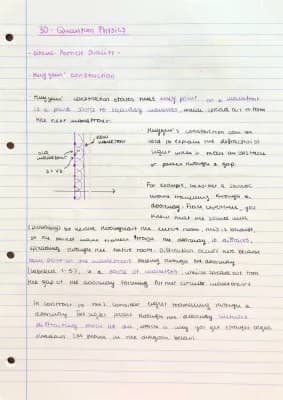 30 - Quantum Physics
- Wave Particle Duality -
- Huygens' construction
Huygens' construction states that every point on a wavefront
is a point source to secondary wavelets, which spread out to form
the next wavefront.
new
wavefront
old
wavefront
- Huygens's construction can be
used to explain the diffraction of
light when it meets an obstacle
or passes through a gap.
For example, consider a sound
wave travelling through a
doorway. From experience, you
know that the sound will
be heard throughout the entire room, this is because,
as the sound wave travels through the doorway, it diffracts,
spreading through the entire room. Diffraction occurs because
each point on the wavefront passing through the doorway
(labelled 1-5), is a source of wavelets, which spreads out from
the gap of the doorway forming circular wavefronts.
In contrast to this, consider light travelling through a
doorway. The light passes through the doorway without
diffracting much at all, which is why you get straight edged
shadows (as shown in the diagram below)